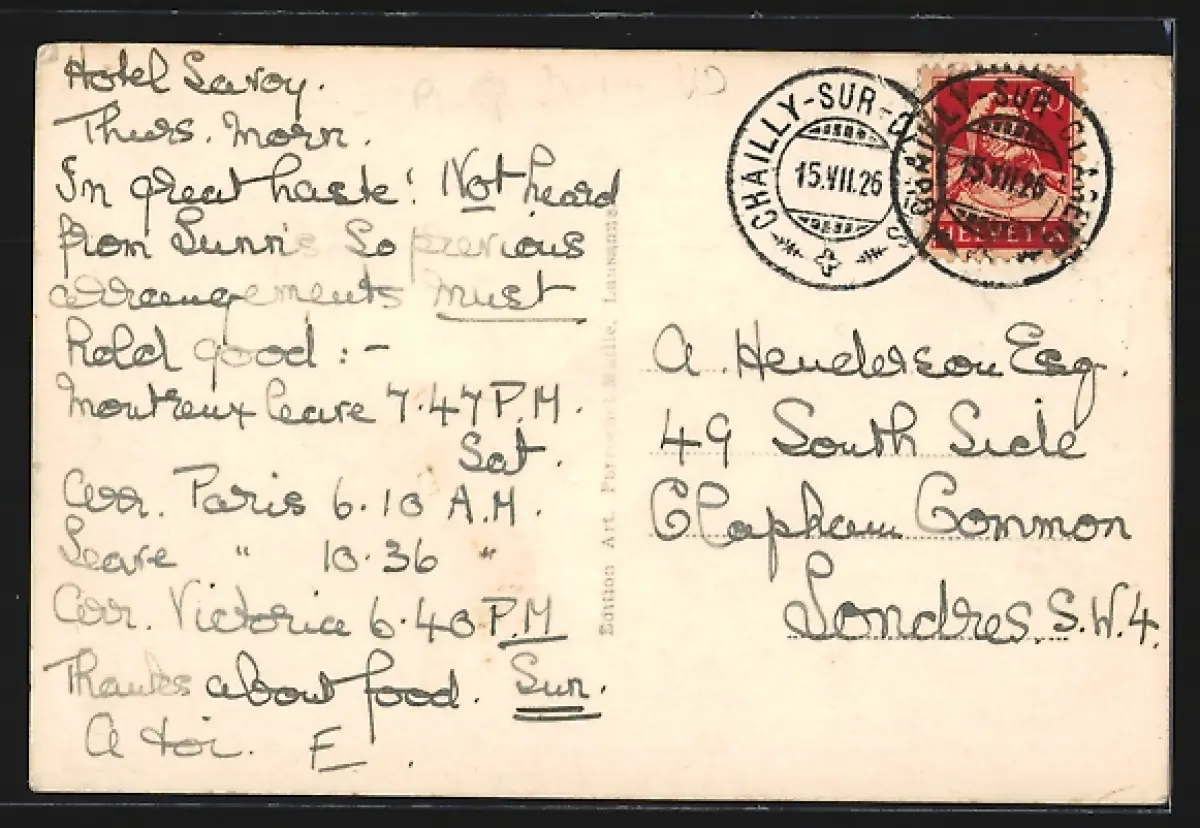 Hotel Savoy.
Thurs. Morn.
In great haste! Not heard
from Sunnie So previous
arrangements must
hold good :-
Montreux leave 7.47 P.M.
Sat.
Arr. Paris 6.10 A.M.
Leave " 10.36 "
Arr. Victoria 6.40 P.M
Sun.
Thanks about food.
A toi. E.
CHAILLY-SUR-CLARENS
15.VII.26
CHAILLY-SUR-CLARENS
15.VII.26
HELVETIA
Edition Art. Lausanne
A. Henderson Esq.
49 South Side
Clapham Common
Londres. S.W.4.